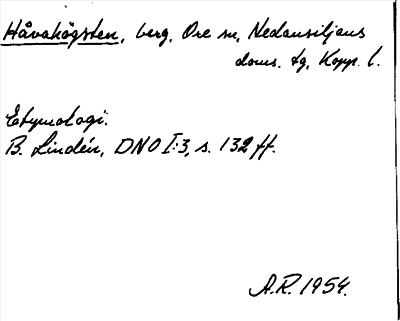 Håvahögsten, berg, Ore sn, Nedansiljans
doms. tg, Kopp. l.
Etymologi.
B. Lindén, DNO I:3, s. 132 ff.
A.R. 1954.